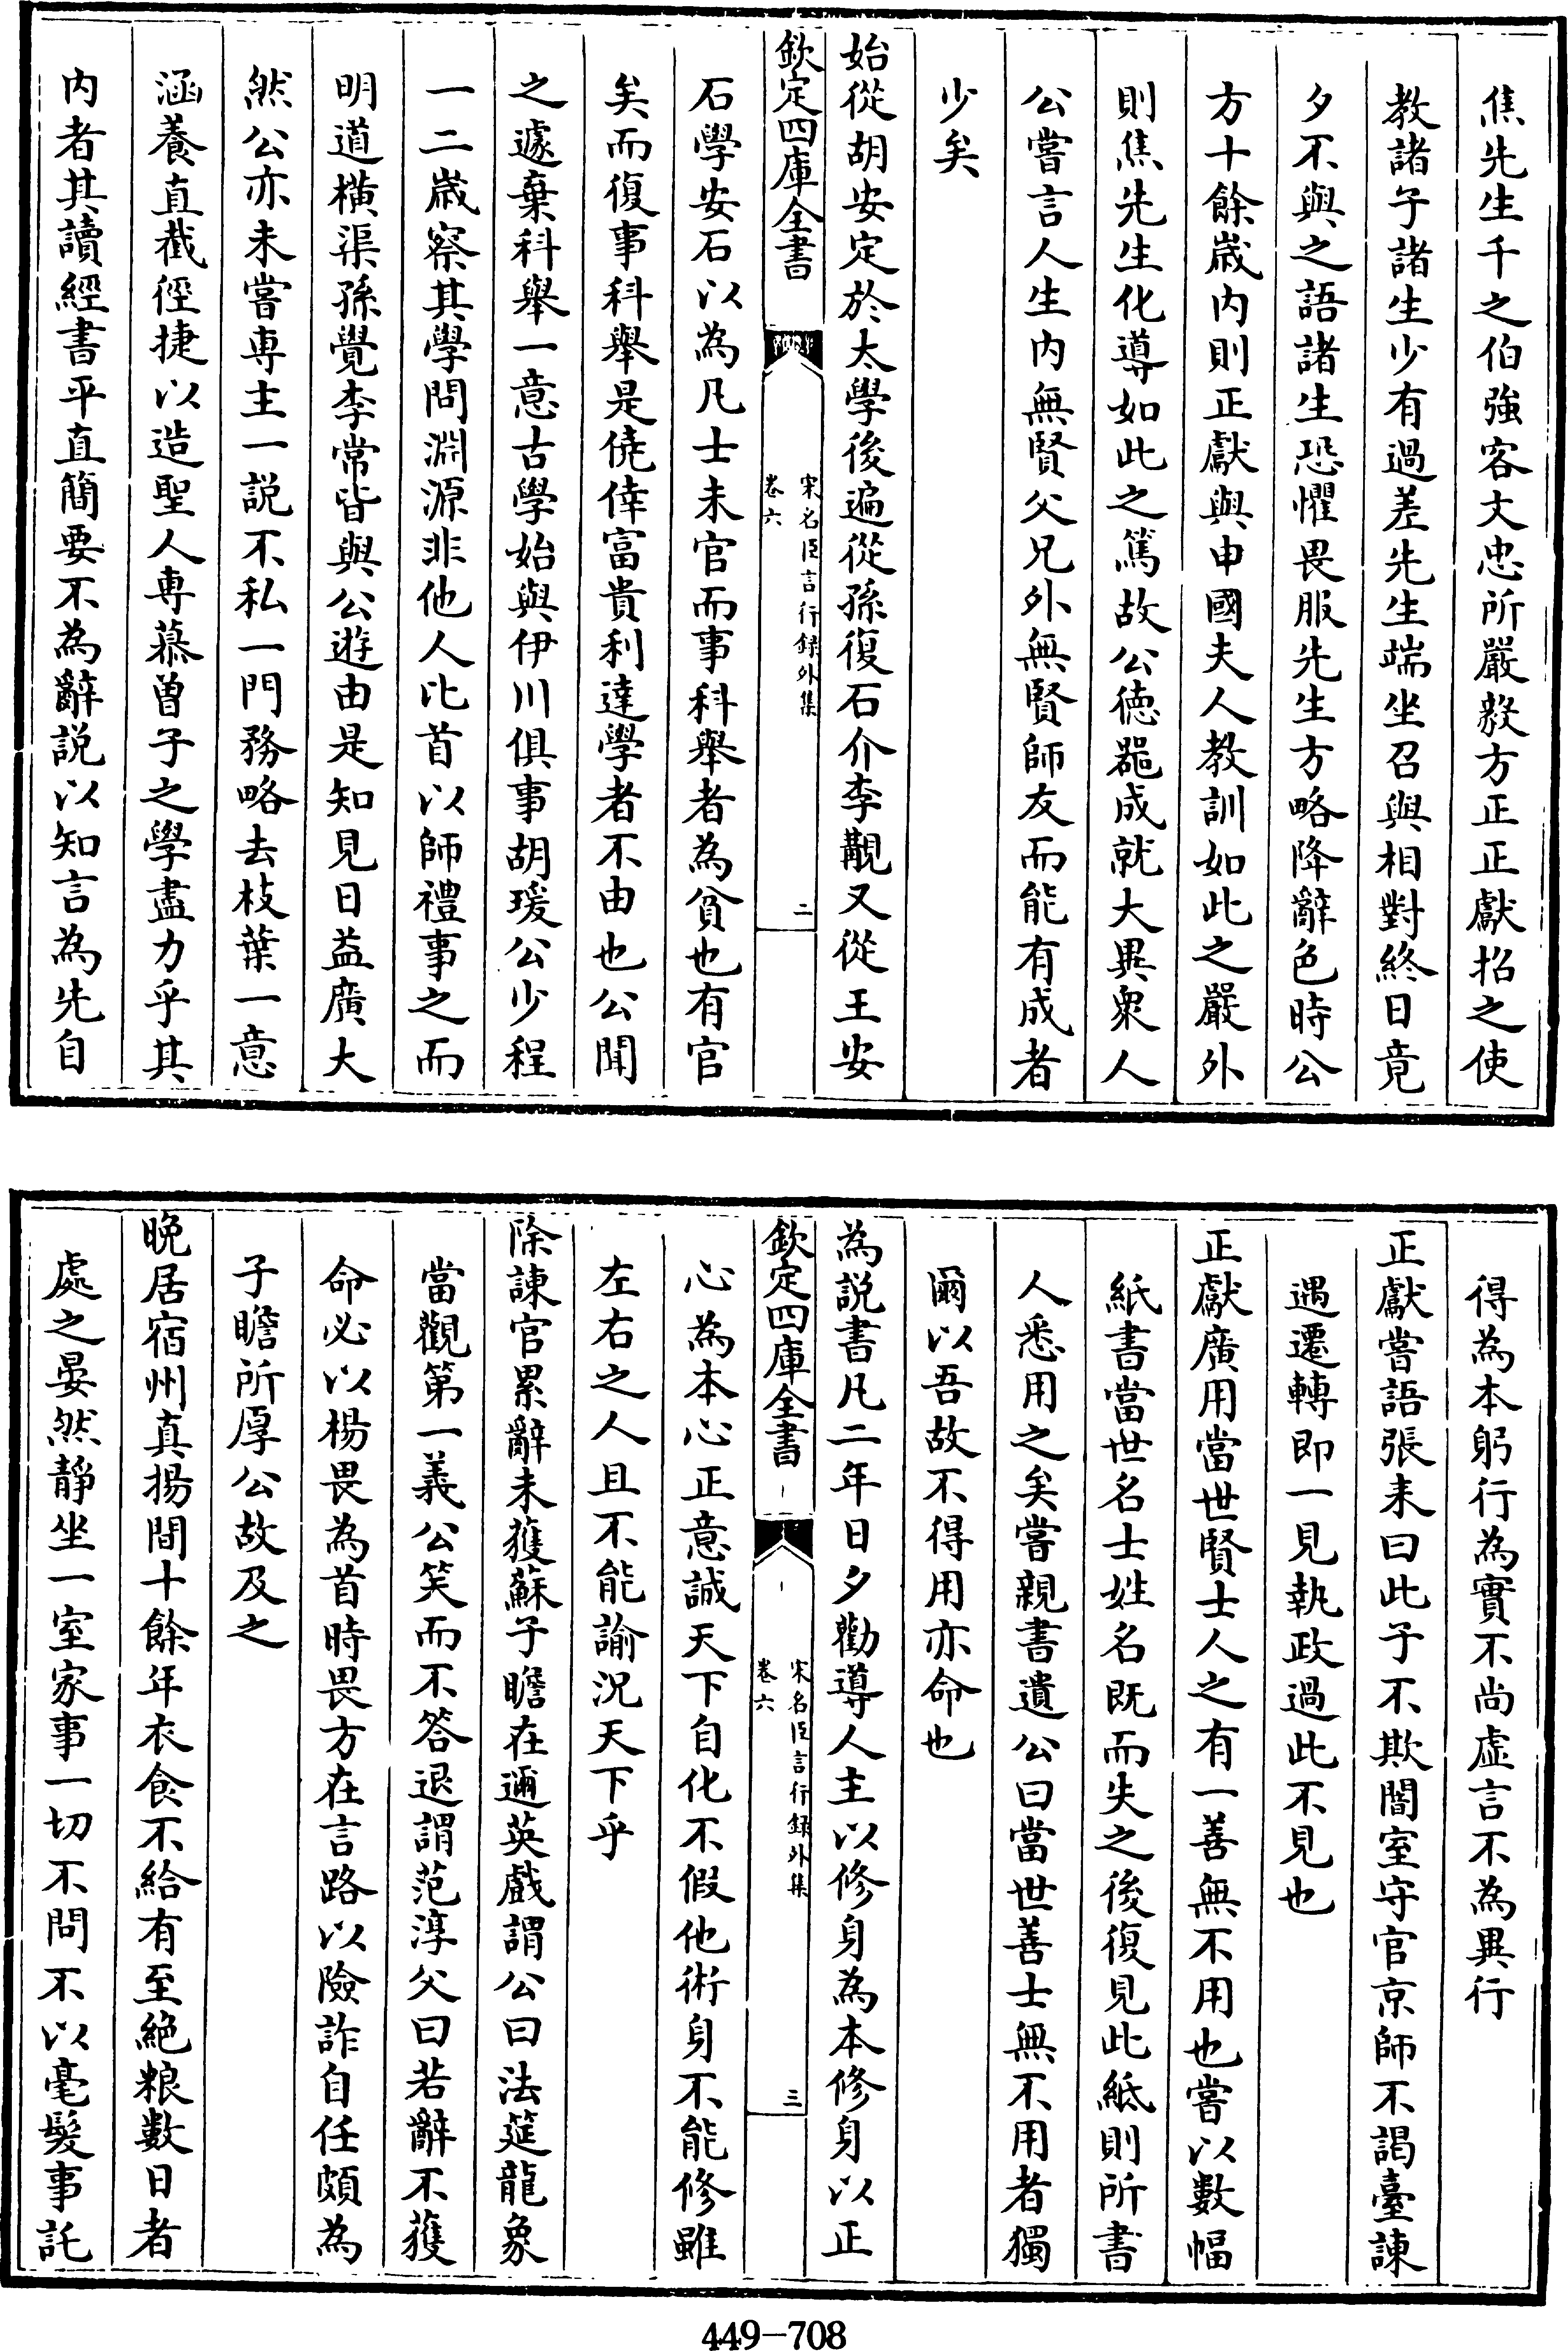 焦先生千之伯強客文忠所嚴毅方正正獻招之使
教諸子諸生少有過差先生端坐召與相對終日竟
夕不與之語諸生恐懼畏服先生方略降辭色時公
方十餘歲内則正獻與申國夫人教訓如此之嚴外
則焦先生化導如此之篤故公德器成就大異衆人
公嘗言人生内無賢父兄外無賢師友而能有成者
少矣
始從胡安定於太學後遍從孫復石介李覯又從王安
欽定四庫全書
宋名臣言行録外集
卷六
二
石學安石以為凡士未官而事科舉者為貧也有官
矣而復事科舉是僥倖富貴利達學者不由也公聞
之遽棄科舉一意古學始與伊川俱事胡瑗公少程
一二歲察其學問淵源非他人比首以師禮事之而
明道橫渠孫覺李常皆與公遊由是知見日益廣大
然公亦未嘗専主一説不私一門務略去枝葉一意
涵養直截徑捷以造聖人専慕曽子之學盡力乎其
内者其讀經書平直簡要不為辭説以知言為先自
得為本躬行為實不尚虛言不為異行
正獻嘗語張耒曰此子不欺闇室守官京師不謁臺諫
遇遷轉即一見執政過此不見也
正獻廣用當世賢士人之有一善無不用也嘗以數幅
紙書當世名士姓名既而失之後復見此紙則所書
人悉用之矣嘗親書遺公曰當世善士無不用者獨
爾以吾故不得用亦命也
為説書凡二年日夕勸導人主以修身為本修身以正
欽定四庫全書
宋名臣言行録外集
卷六
三
心為本心正意誠天下自化不假他術身不能修雖
左右之人且不能諭況天下乎
除諫官累辭未獲蘇子瞻在邇英戲謂公曰法筵龍象
當觀第一義公笑而不答退謂范淳父曰若辭不獲
命必以楊畏為首時畏方在言路以險詐自任頗為
子瞻所厚公故及之
晚居宿州真揚間十餘年衣食不給有至絶粮數日者
處之晏然靜坐一室家事一切不問不以毫髮事託
449-708